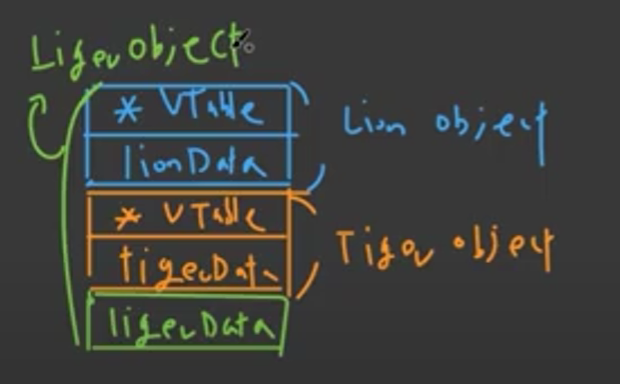 Liger object
* VTable
lionData
Lion object
* VTable
tigerData
Tiger object
ligerData